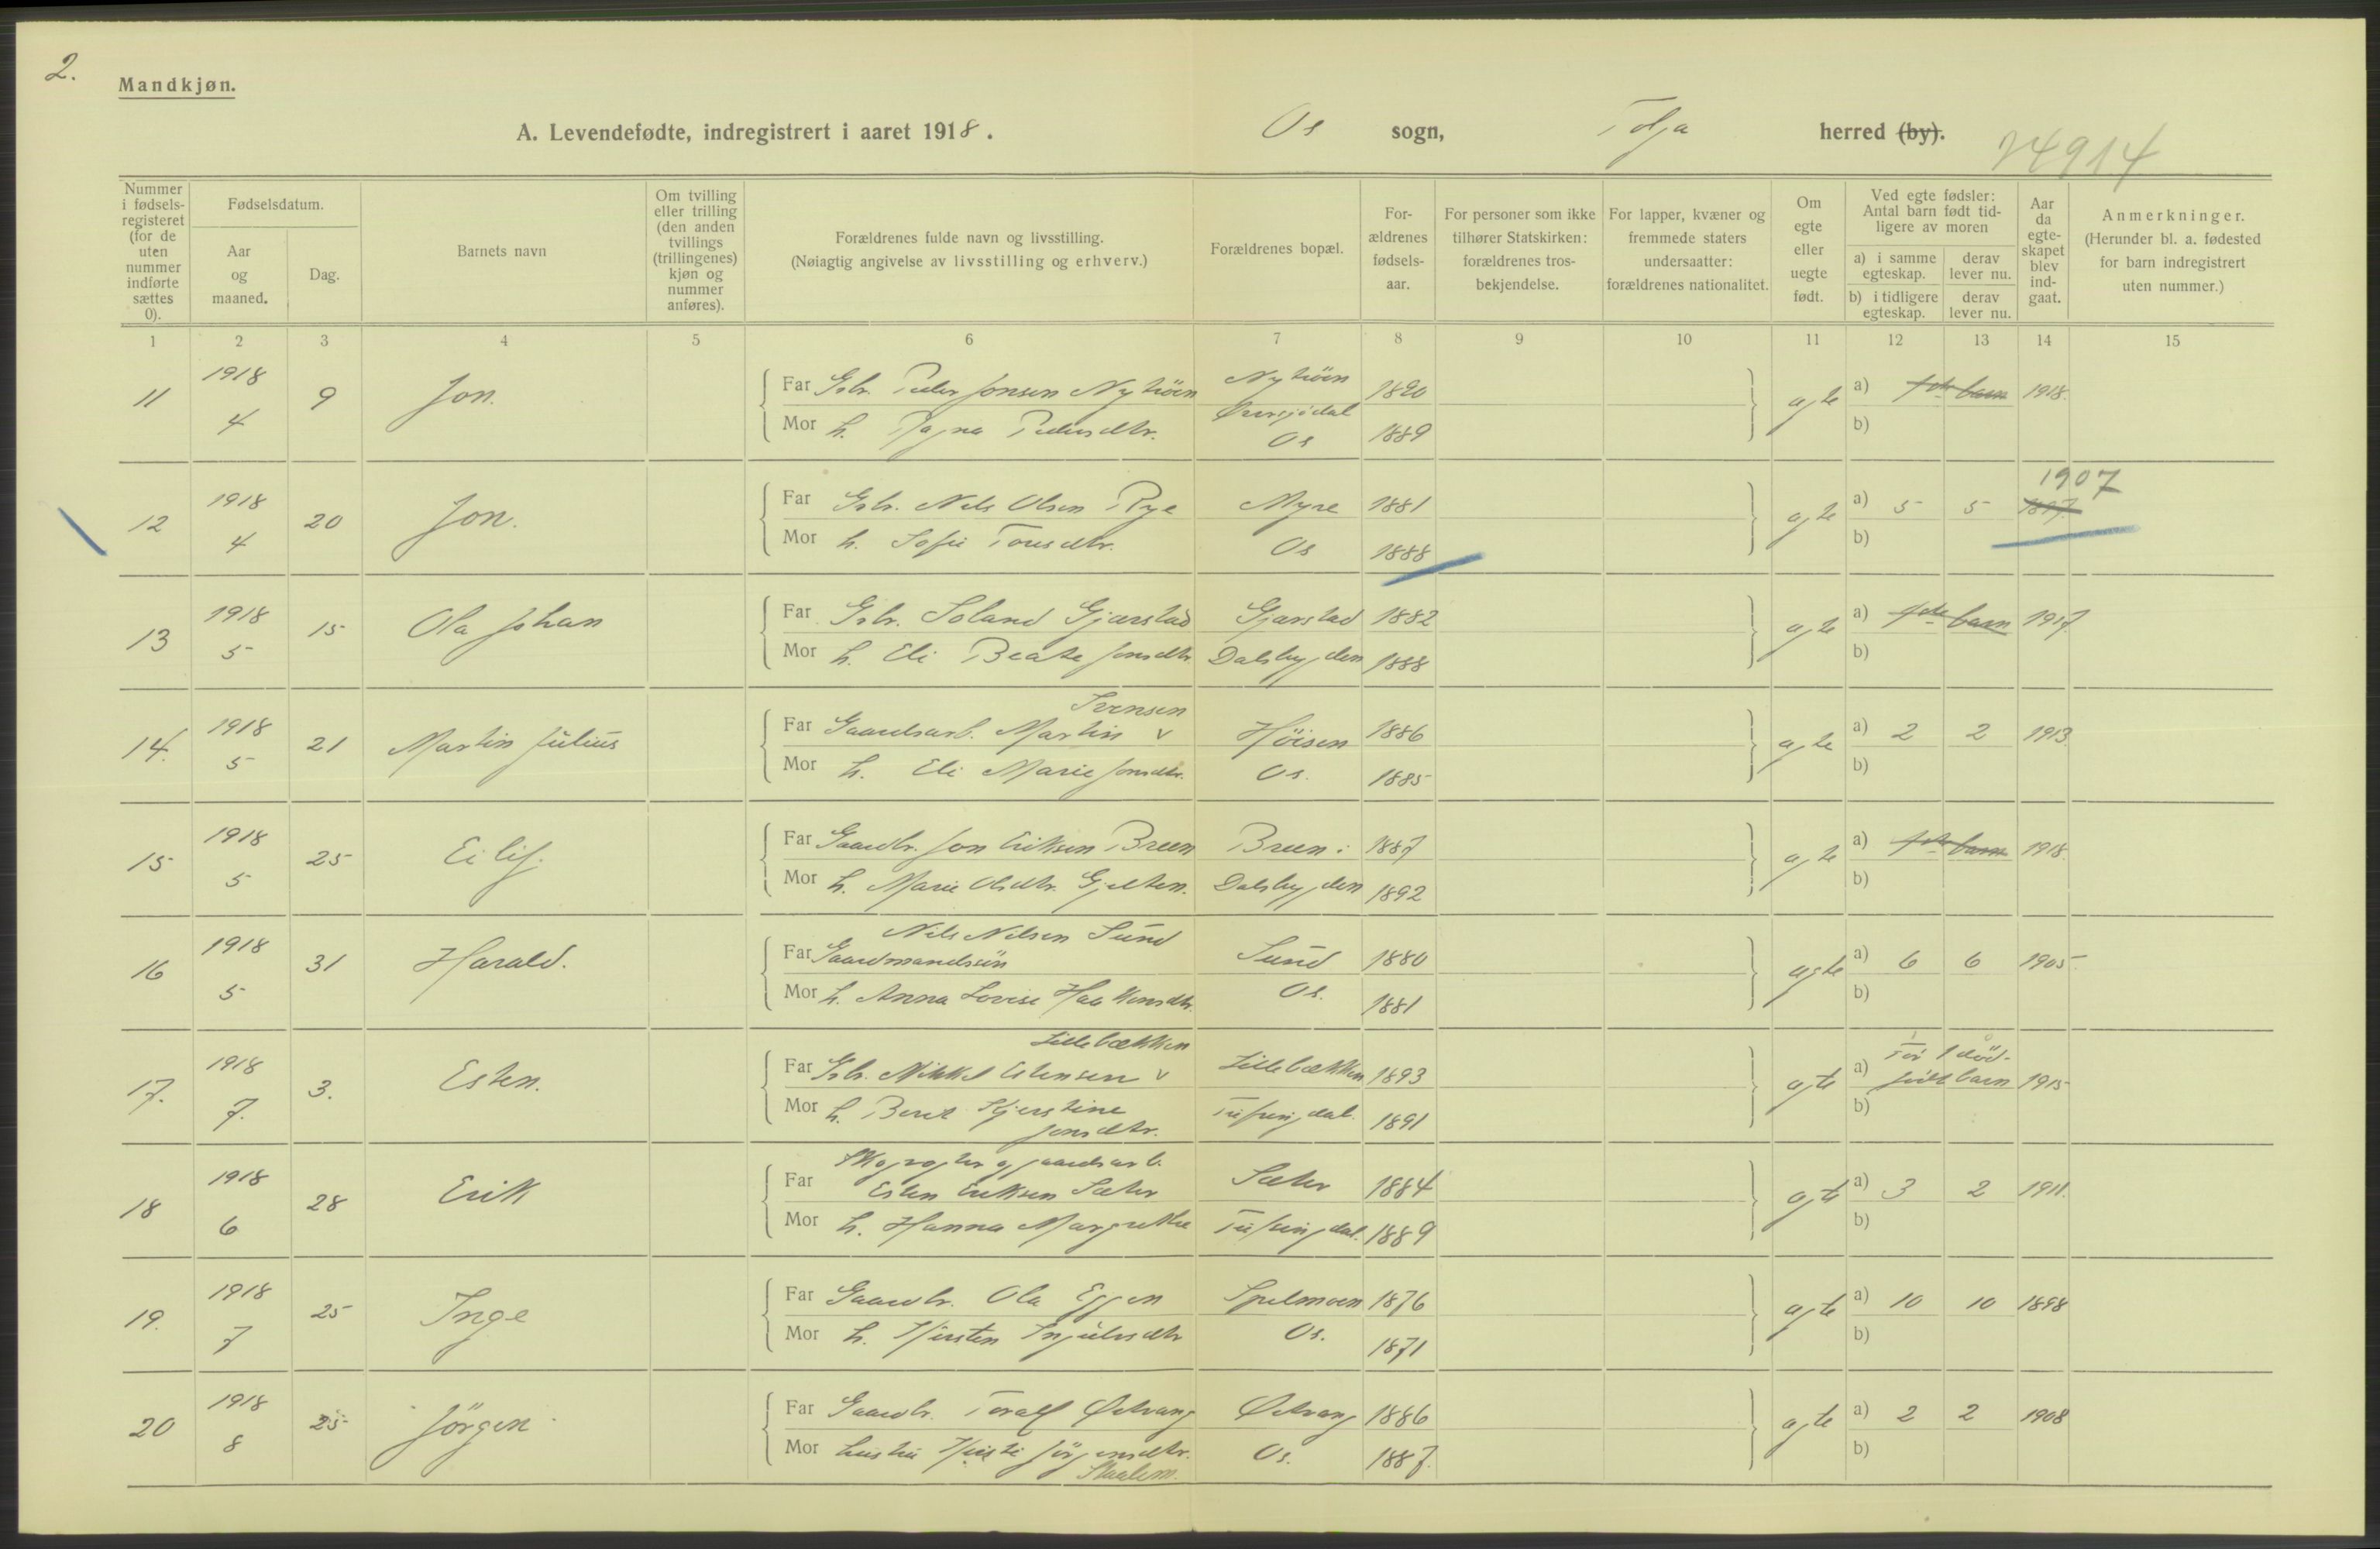 2.
Mandkjøn.
A. Levendefødte, indregistrert i aaret 1918. Os sogn, Tolga herred (by).
24914
Nummer i fødselsregisteret (for de uten nummer indførte sættes 0).
Fødselsdatum.
Aar og maaned.
Dag.
Barnets navn
Om tvilling eller trilling (den anden tvillings (trillingenes) kjøn og nummer anføres).
Forældrenes fulde navn og livsstilling.
(Nøiagtig angivelse av livsstilling og erhverv.)
Forældrenes bopæl.
Forældrenes fødselsaar.
For personer som ikke tilhører Statskirken: forældrenes trosbekjendelse.
For lapper, kvæner og fremmede staters undersaatter: forældrenes nationalitet.
Om egte eller uegte født.
Ved egte fødsler: Antal barn født tidligere av moren
a) i samme egteskap. derav lever nu.
b) i tidligere egteskap. derav lever nu.
Aar da egteskapet blev indgaat.
Anmerkninger.
(Herunder bl. a. fødested for barn indregistrert uten nummer.)
1 2 3 4 5 6 7 8 9 10 11 12 13 14 15
11 1918 4 9 Jon.
Far Gbr. Peder Jonsen Nytrøen Nytrøen 1890 egte a) 1ste barn 1918.
Mor h. Ragna Pedersdtr. Øversjødal Os 1889 b)
12 1918 4 20 Jon.
Far Gbr. Nils Olsen Rye Myre 1881 egte a) 5 5 1897 1907
Mor h. Sofie Toresdtr. Os 1888 b)
13 1918 5 15 Ola Johan
Far Gbr. Soland Gjærstad Gjærstad 1882 egte a) 1ste barn 1917
Mor h. Eli Beate Jonsdtr Dalsbygden 1888 b)
14. 1918 5 21 Martin Julius
Svensen
Far Gaardsarb. Martin v Høisen 1886 egte a) 2 2 1913
Mor h. Eli Marie Jonsdtr. Os. 1885 b)
15 1918 5 25 Eilif.
Far Gaardbr. Jon Eriksen Breen Breen 1887 egte a) 1ste barn 1918.
Mor h. Marie Olsdtr. Gjelten. Dalsbygden 1892 b)
16 1918 5 31 Harald.
Nils Nilsen Sund
Far Gaardmandssøn Sund 1880 egte a) 6 6 1905
Mor h. Anna Lovise Haakonsdtr. Os. 1881 b)
17. 1918 7. 3. Esten.
Lillebækken
Far Gbr. Mikkel Estensen v Lillebækken 1893 egte a) Før 1 dødfødt barn 1915
Mor h. Berit Kjerstine Jonsdtr. Tufsingdal. 1891 b)
18 1918 6 28 Erik
Skogvogter og gaardsarb.
Far Esten Eriksen Sæter Sæter 1884 egte a) 3 2 1911.
Mor h. Hanna Margrethe Tufsingdal. 1889 b)
19. 1918 7 25 Inge
Far Gaardbr. Ola Eggen Spelmoen 1876 egte a) 10 10 1898
Mor h. Kjersten Ingulvsdtr Os. 1871 b)
20 1918 8 25 Jörgen
Far Gaardbr. Toralf Østvang Østvang 1886 egte a) 2 2 1908
Mor hustru Kjersti Jörgensdtr. Os. 1887. b)